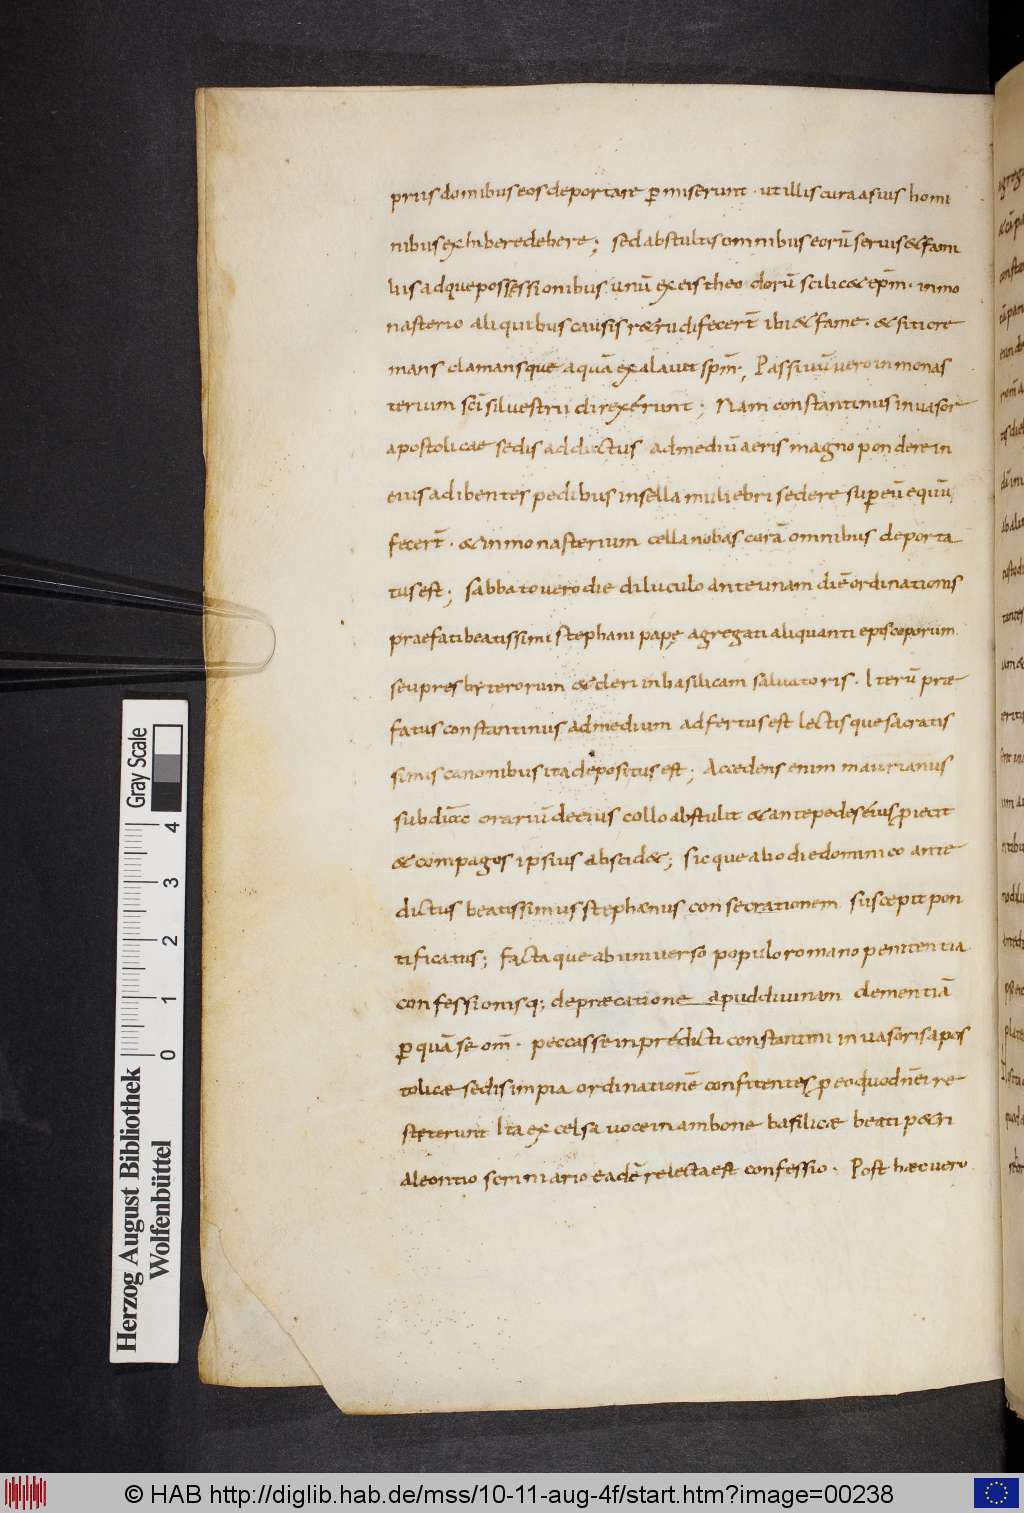 priis domibus eos deportare p̲miserunt · ut illis cura a suis homi
nibus exhiberedebere; sed abstultis omnibus eorū seruis &fami
liis adque possessionibus unū ex eis theodorū scilic& ep̄m · inmo
nasterio aliquibus causis r&rudi fecert̄ ibi & fame · & siti cre
mans clamansque aquā exalauit sp̄m; Passiuū uero in monas
terium sc̄i siluestrii direxérunt; Nam constantinus inuasor
apostolicae sedis adductus ad mediū aeris magno pondere in
eius adibentes pedibus in sella muliebri sedere super eū equū
fecert̄ · & in monasterium cellanobas corā omnibus deporta
tus est; sabbato uero die diluculo ante unam diē ordinationis
praefati beatissimi stephani papę agregati aliquanti episcoporum
seu presbyterorum & cleri in basilicam saluatoris · Iterū præ
fatus constantinus ad medium adfertus est lectisque sacratis
simis canonibus ita depositus est; Accedens enim maurianus
subdiāc orariū de eius collo abstulit & ante pedes eius p̲iecit
& compagos ipsius abscid&; sicque alio die dominico ante
dictus beatissimus stephanus consecrationem suscepit pon
tificatus; factaque ab uniuerso populo romano penitentia
confessionisq; depræcatione apud diuinam clementiā
p̲ quā se om̄ · peccasse inprédicti constantini inuasoris apos
tolicæ sedis impia ordinationē confitentes p̲ eo quod n̄ ei re
steterunt Ita excelsa uoce in ambone basilicæ beati p&ri
a leontio scriniario eadē relecta est confessio · Post hæc uero
Herzog August Bibliothek
Wolfenbüttel
Gray Scale
0 1 2 3 4
© HAB http://diglib.hab.de/mss/10-11-aug-4f/start.htm?image=00238